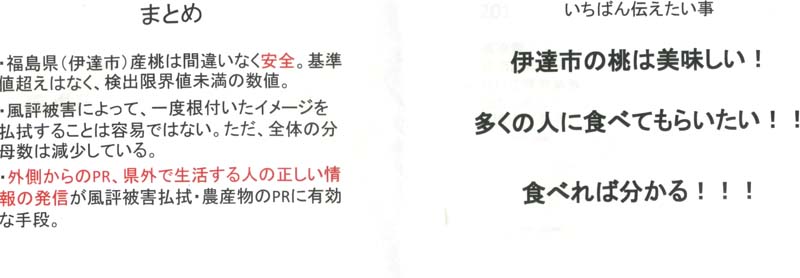 まとめ
・福島県（伊達市）産桃は間違いなく安全。基準
値超えはなく、検出限界値未満の数値。
・風評被害によって、一度根付いたイメージを
払拭することは容易ではない。ただ、全体の分
母数は減少している。
・外側からのPR、県外で生活する人の正しい情
報の発信が風評被害払拭・農産物のPRに有効
な手段。
いちばん伝えたい事
伊達市の桃は美味しい！
多くの人に食べてもらいたい！！
食べれば分かる！！！